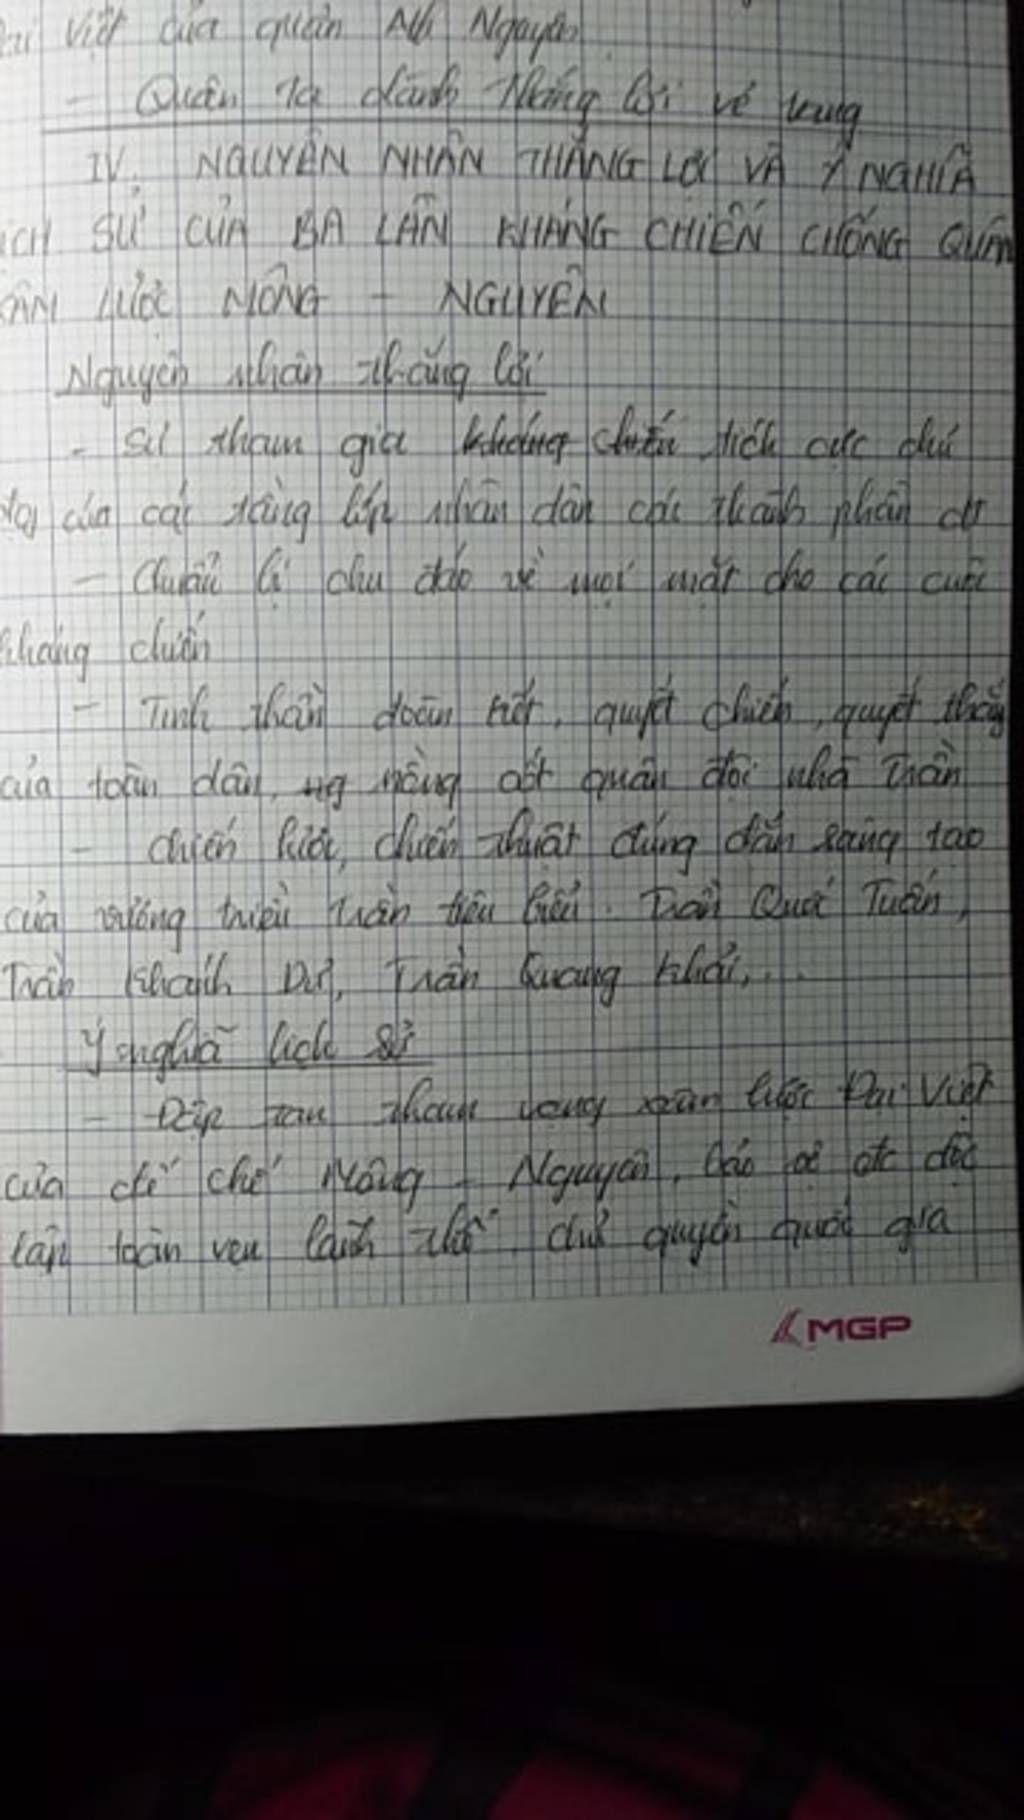 Việt của quân Ng Nguyên
- Quân ta dành thắng lợi vẻ vang
IV. NGUYÊN NHÂN THẮNG LỢI VÀ Ý NGHĨA
SỬ CỦA BA LẦN KHÁNG CHIẾN CHỐNG QUÂN
LƯỢC MÔNG - NGUYÊN
Nguyên nhân thắng lợi
- Sự tham gia kháng chiến tích cực chủ
của các tầng lớp nhân dân các thành phần
- Chuẩn bị chu đáo về mọi mặt cho các cuộc
kháng chiến
- Tinh thần đoàn kết, quyết chiến, quyết thắng
của toàn dân, ng nòng cốt quân đội nhà Trần
- chiến lược, chiến thuật đúng đắn sáng tạo
của vương triều Trần tiêu biểu: Trần Quốc Tuấn,
Trần Khánh Dư, Trần Quang Khải,...
Ý nghĩa lịch sử
- Đập tan tham vọng xâm lược Đại Việt
của đế chế Mông - Nguyên, bảo vệ độc
lập toàn vẹn lãnh thổ, chủ quyền quốc gia
MGP